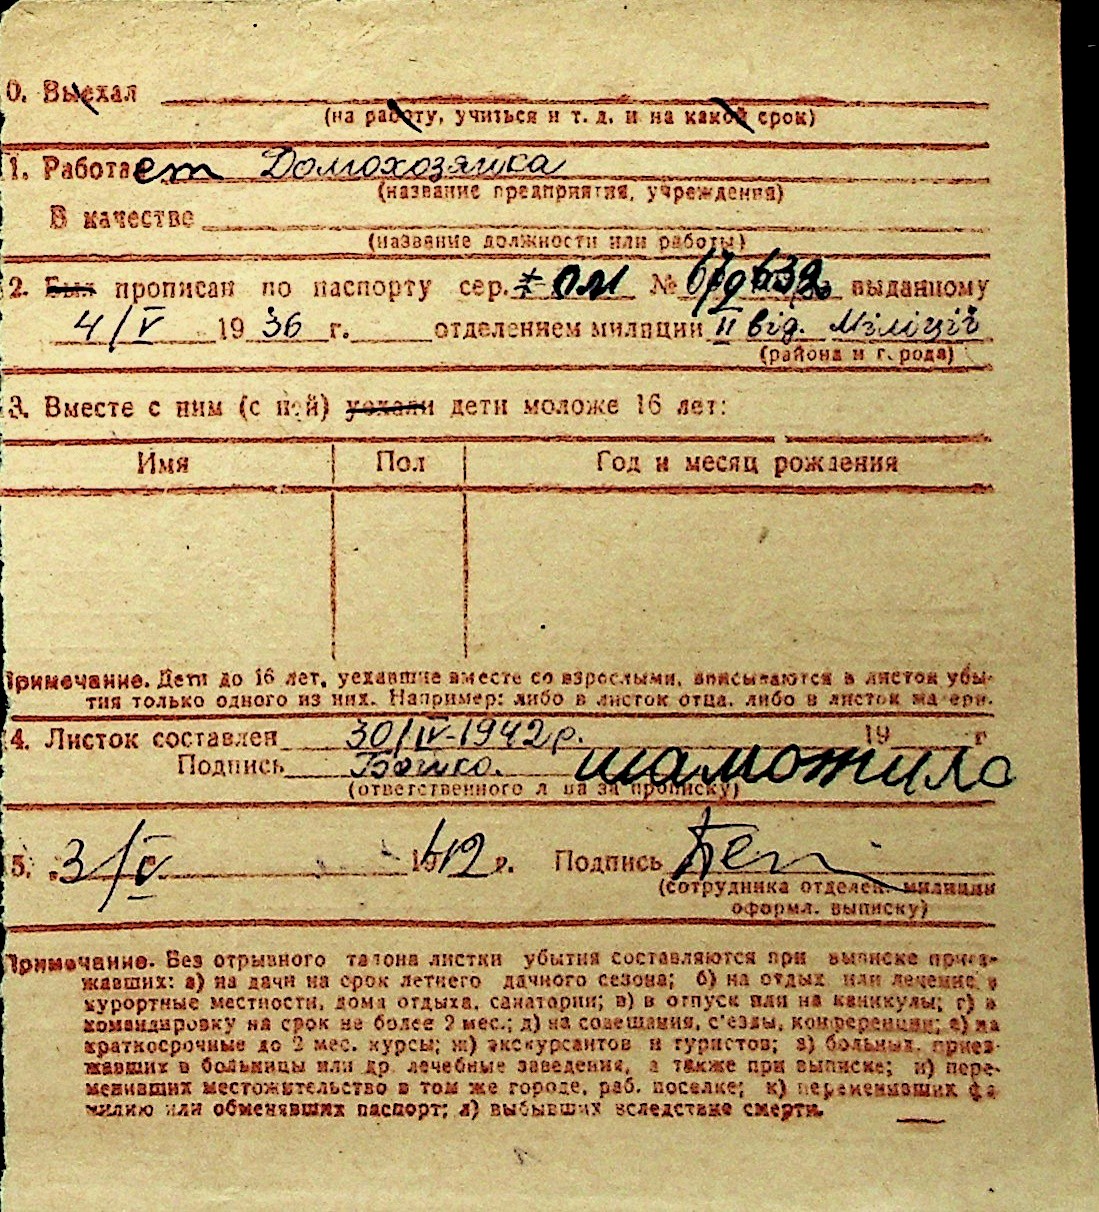 0. Выехал
(на работу, учиться и т. д. и на какой срок)
1. Работает Домохозяйка
(название предприятия, учреждения)
В качестве
(название должности или работы)
2. Был прописан по паспорту сер. № выданному
4/V 1936 г. отделением милиции II від. Міліції
(района и города)
3. Вместе с ним (с ней) уехали дети моложе 16 лет:
Имя Пол Год и месяц рождения
Примечание. Дети до 16 лет, уехавшие вместе со взрослыми, вписываются в листок убы-
тия только одного из них. Например: либо в листок отца, либо в листок матери.
4. Листок составлен 30/IV-1942 р. 19 г
Подпись
(ответственного лица за прописку)
5. 3/V 1942 г. Подпись
(сотрудника отделен. милиции
оформл. выписку)
Примечание. Без отрывного талона листки убытия составляются при выписке приез-
жавших: а) на дачи на срок летнего дачного сезона; б) на отдых или лечение в
курортные местности, дома отдыха, санатории; в) в отпуск или на каникулы; г) в
командировку на срок не более 2 мес.; д) на совещания, с'езды, конференции; е) на
краткосрочные до 2 мес. курсы; ж) экскурсантов и туристов; з) больных, приез-
жавших в больницы или др. лечебные заведения, а также при выписке; и) пере-
менивших местожительство в том же городе, раб. поселке; к) переменивших фа-
милию или обменявших паспорт; л) выбывших вследствие смерти.